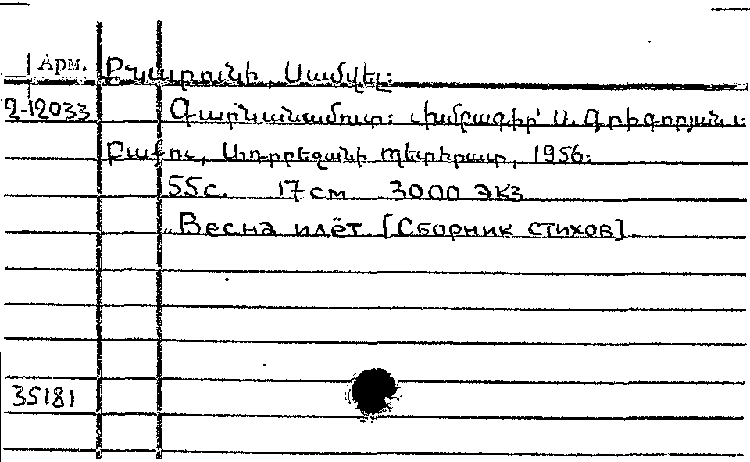 Арм.
Սամվել:
2-12033
Գարնանամուտ: Խմբագիր՝ Ա. Գրիգորյան:
Բաքու, Ադրբեջանի պետհրատ, 1956:
55 с. 17 см 3000 экз
"Весна идёт [Сборник стихов].
35181